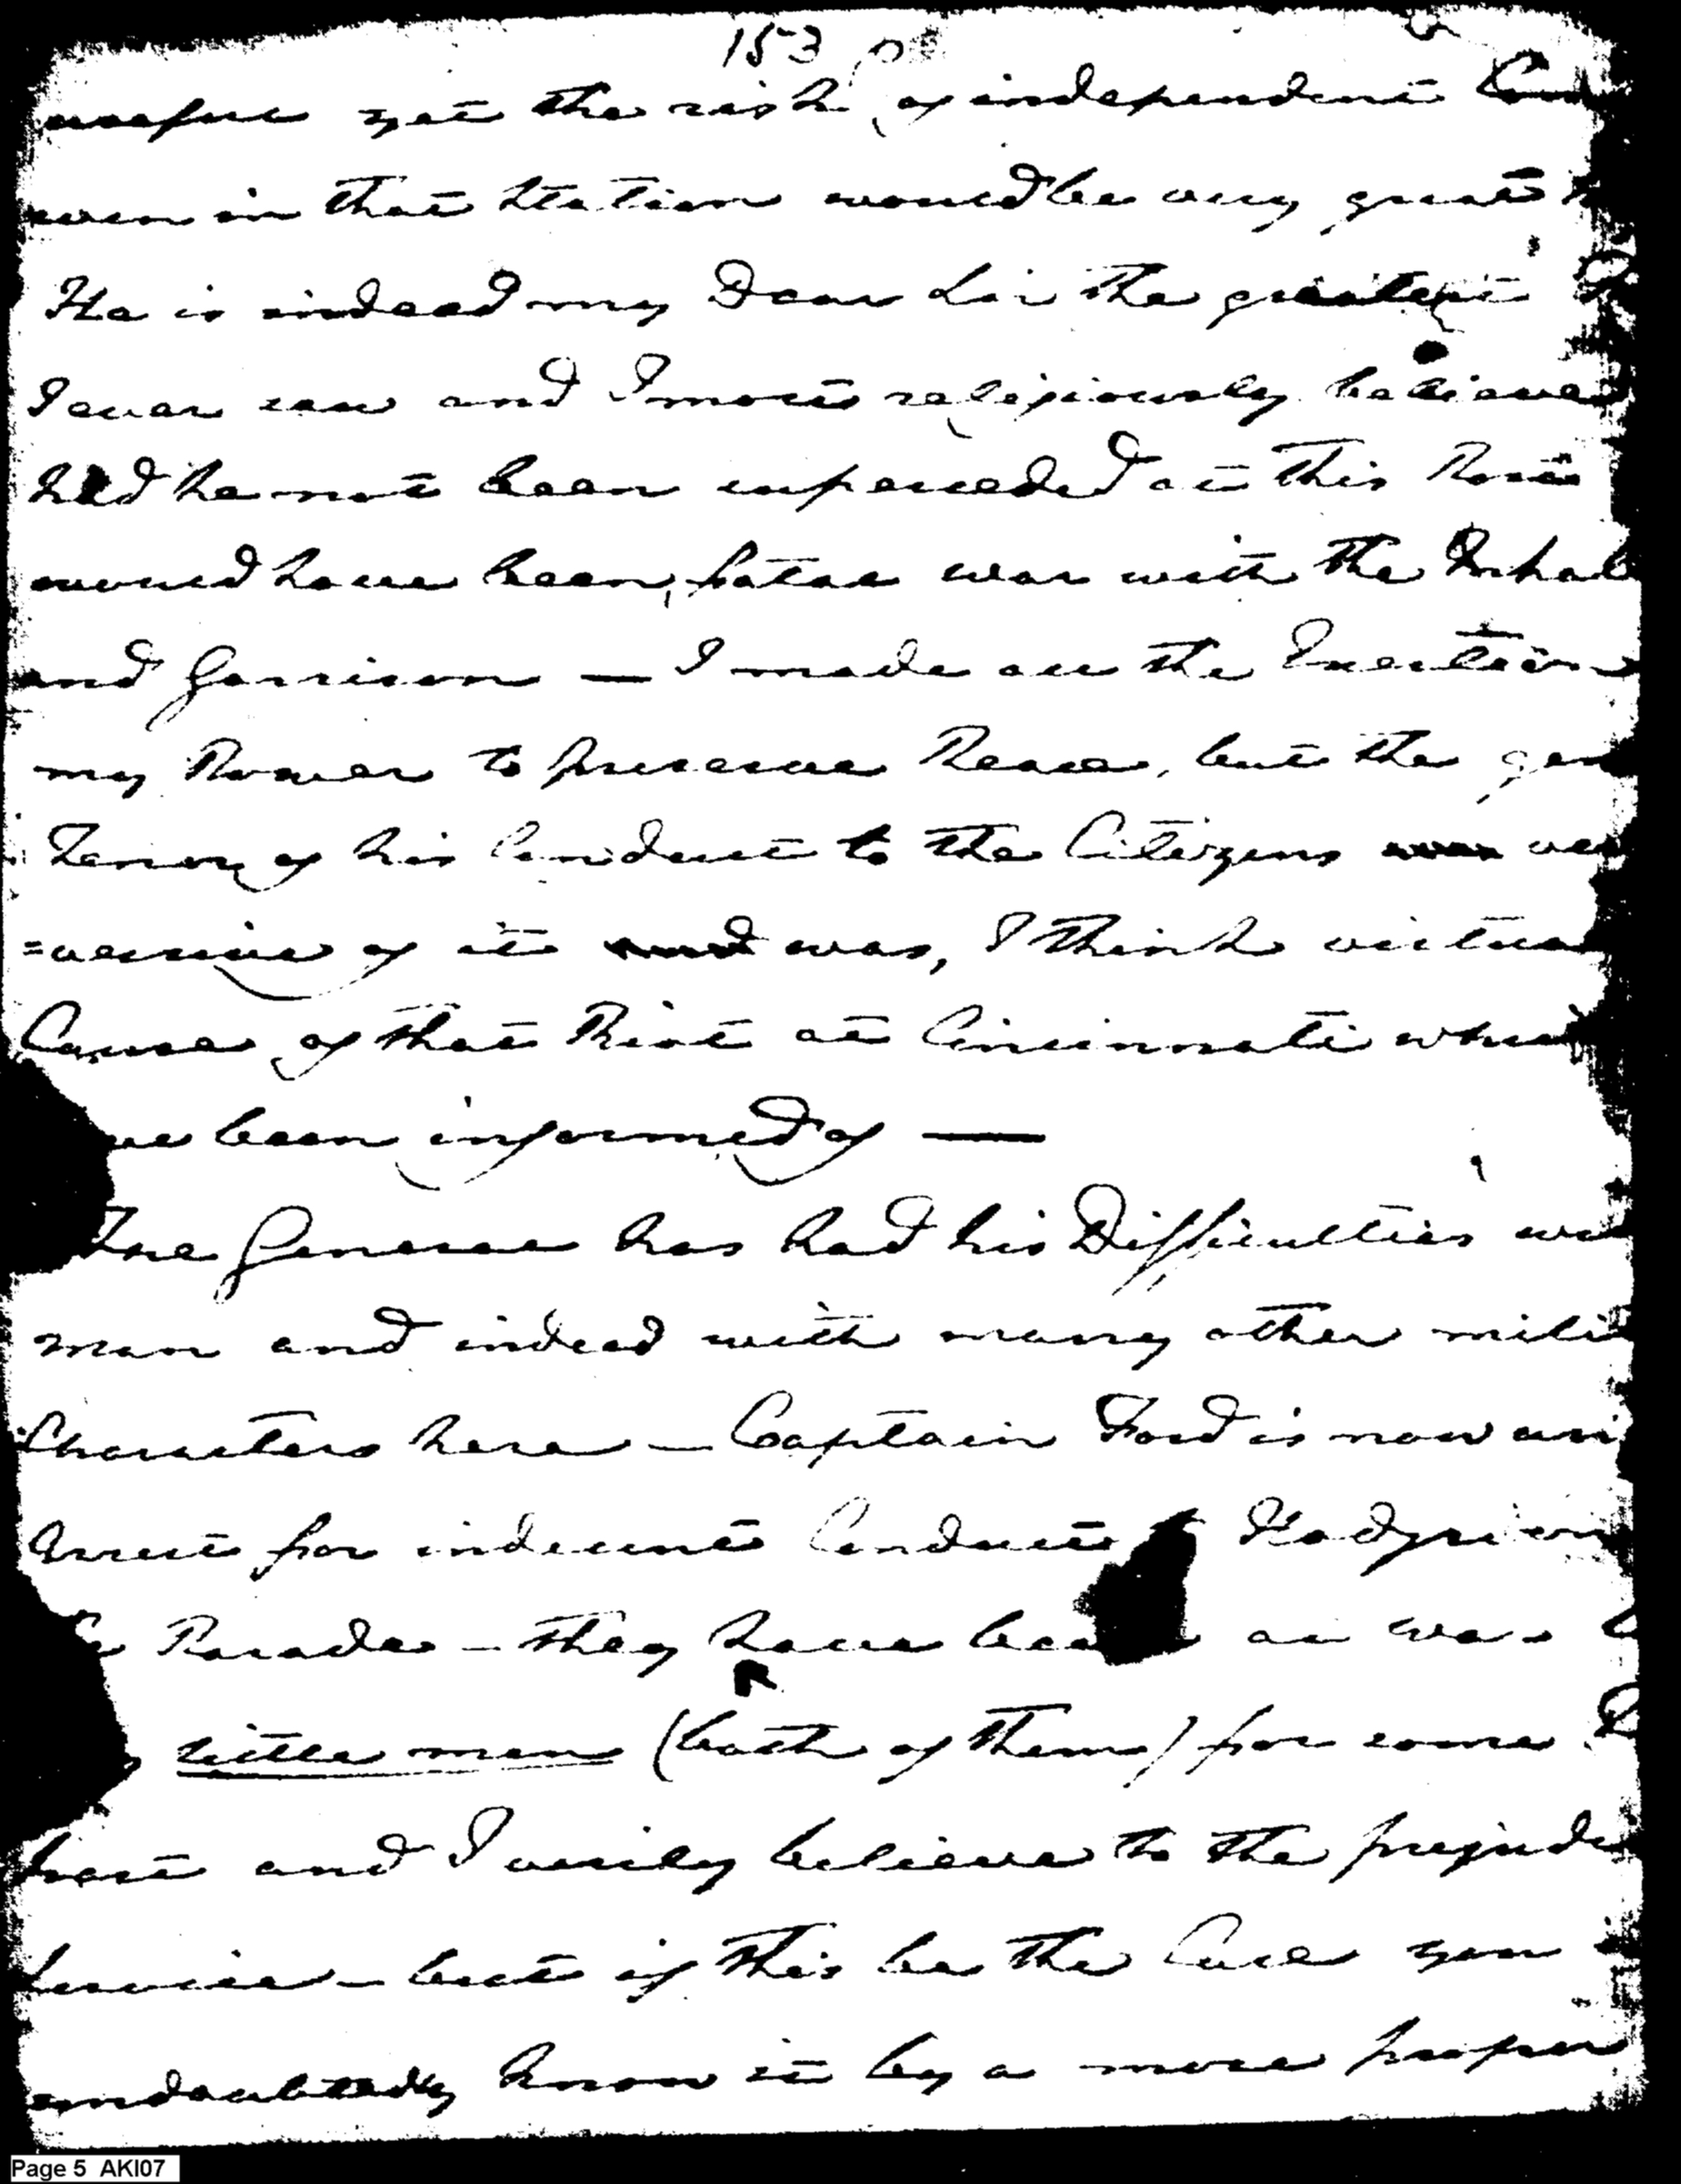 153
useful yet the risk of independent Com
even in that Station would be very great
He is indeed my Dear Sir the greatest
I ever saw and I most religiously believe
had he not been superseded at this Post
would have been fatal war with the Inhab
and Garrison — I made all the Exertion
my Power to preserve Peace, but the gen
Tenor of his Conduct to the Citizens
=versive of it was, I think virtua
Cause of that Riot at Cincinnati whic
ve been informed of —
The General has had his Difficulties wi
man and indeed with many other milit
Characters here — Captain Ford is now un
Arrest for indecent Conduct to Hodgson
Parade — they have been at war
little men (both of them) for some
past and I verily believe to the prejudi
Service — but if this be the Case you
undoubtedly know it by a more proper
Page 5 AKI07